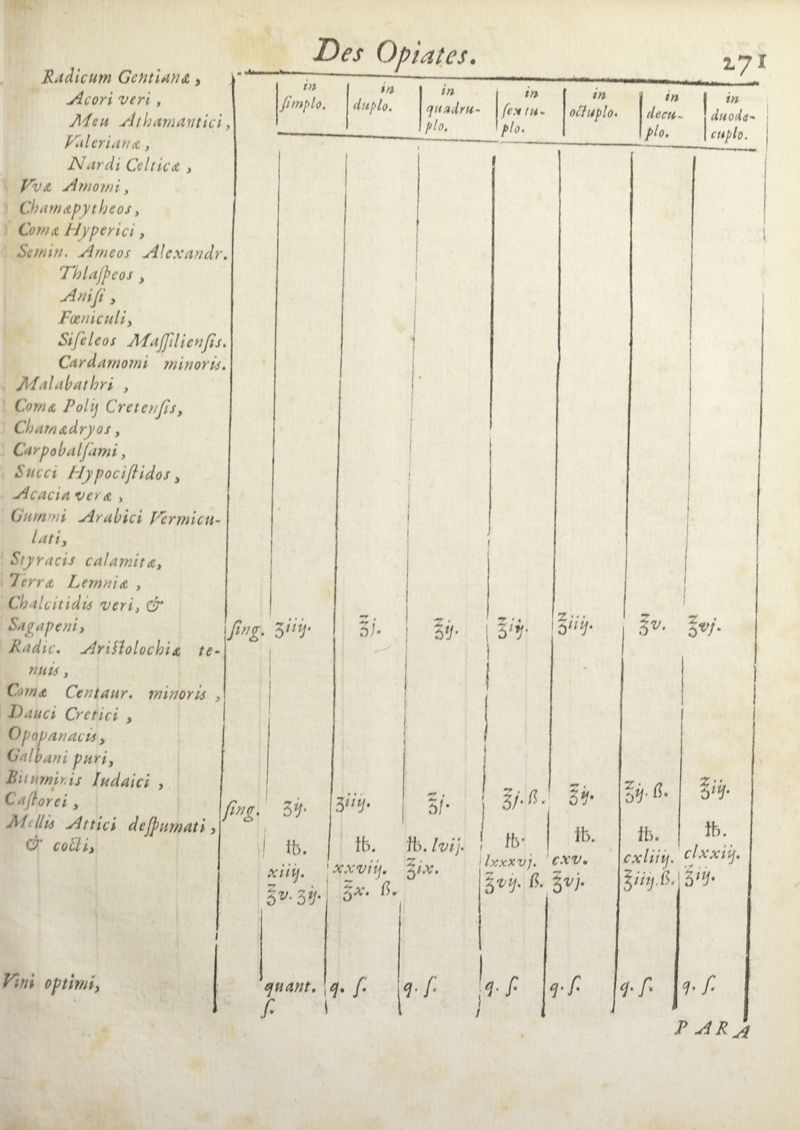 Des Opiates. 271
in simplo. in duplo. in quadruplo. in sextuplo. in octuplo. in decuplo. in duodecuplo.
Radicum Gentianæ,
Acori veri,
Meu Athamantici,
Valerianæ,
Nardi Celticæ,
Vvæ Amomi,
Chamæpytheos,
Comæ Hyperici,
Semin. Ameos Alexandr.
Thlaſpeos,
Aniſi,
Fœniculi,
Siſeleos Maſſilienſis.
Cardamomi minoris.
Malabathri,
Comæ Polij Cretenſis,
Chamædryos,
Carpobalſami,
Succi Hypociſtidos,
Acacia veræ,
Gummi Arabici Vermicu-
lati,
Styracis calamitæ,
Terræ Lemniæ,
Chalcitidis veri, &
Sagapeni, ſing. ʒiiij. ℥j. ℥ij. ℥iij. ℥iiij. ℥v. ℥vj.
Radic. Ariſtolochiæ te-
nuis,
Comæ Centaur. minoris,
Dauci Cretici,
Opopanacis,
Galbani puri,
Bituminis Iudaici,
Caſtorei, ſing. ʒij. ʒiiij. ℥j. ℥j.ß. ℥ij. ℥ij.ß. ℥iij.
Mellis Attici deſpumati,
& cocti, ℔. ℔. ℔. lvij. ℔. ℔. ℔. ℔.
xiiij. xxviij. ℥ix. lxxxvj. cxv. cxliiij. clxxiij.
℥v. ʒij. ℥x. ß. ℥vij. ß. ℥vj. ℥iiij.ß. ℥iij.
Vini optimi, quant. q. ſ. q. ſ. q. ſ. q. ſ. q. ſ. q. ſ.
ſ.
PARA